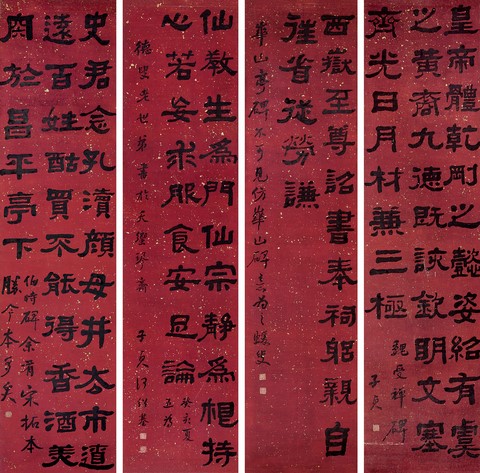 皇帝體乾剛之懿姿紹有虞
之黃裔九德既該欽明文塞
齊光日月材兼三極
魏受禪碑
子貞
西嶽至尊詔書奉祠躬親自
往省從勞謙
華山亭碑不可見仿華山碑意為之蝯叟
仙教生為門仙宗靜為根持
心若妄求服食安旦論
癸亥夏
五為
德叟老世弟書於天琴斋
子貞何紹基
史君念孔瀆顏母井去市遼
遠百姓酤買不能得香酒美
肉於昌平亭下
伯時碑余有宋拓本
勝今本多矣